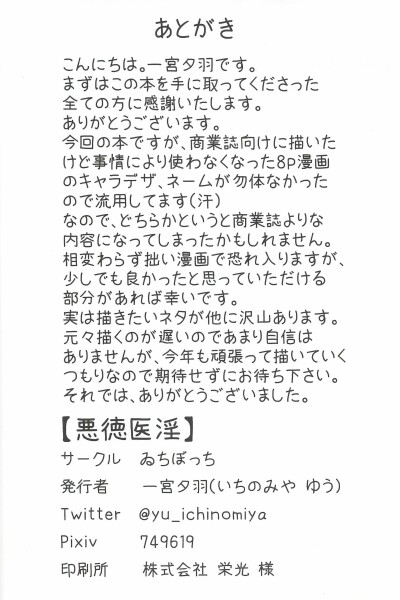 あとがき
こんにちは。一宮夕羽です。
まずはこの本を手に取ってくださった
全ての方に感謝いたします。
ありがとうございます。
今回の本ですが、商業誌向けに描いた
けど事情により使わなくなった8p漫画
のキャラデザ、ネームが勿体なかった
ので流用してます(汗)
なので、どちらかというと商業誌よりな
内容になってしまったかもしれません。
相変わらず拙い漫画で恐れ入りますが、
少しでも良かったと思っていただける
部分があれば幸いです。
実は描きたいネタが他に沢山あります。
元々描くのが遅いのであまり自信は
ありませんが、今年も頑張って描いていく
つもりなので期待せずにお待ち下さい。
それでは、ありがとうございました。
【悪徳医淫】
サークル ゐちぼっち
発行者 一宮夕羽(いちのみや ゆう)
Twitter @yu_ichinomiya
Pixiv 749619
印刷所 株式会社 栄光 様